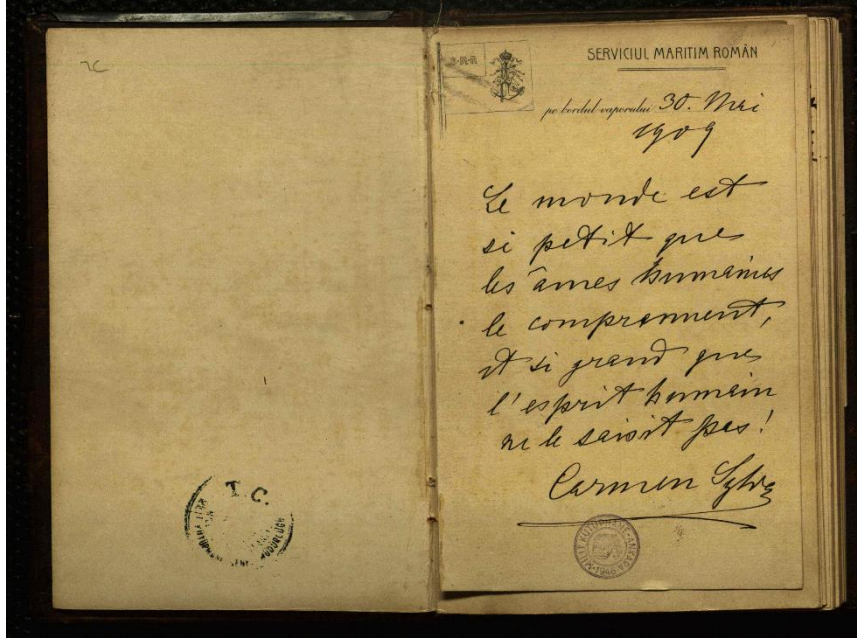 SERVICIUL MARITIM ROMÂN
pe bordul vaporului 30. Mai
1909
Le monde est
si petit que
les âmes humaines
le comprennent,
et si grand que
l'esprit humain
ne le saisit pas!
Carmen Sylva
T. C.
MİLLÎ KÜTÜPHANE-ANKARA-1946